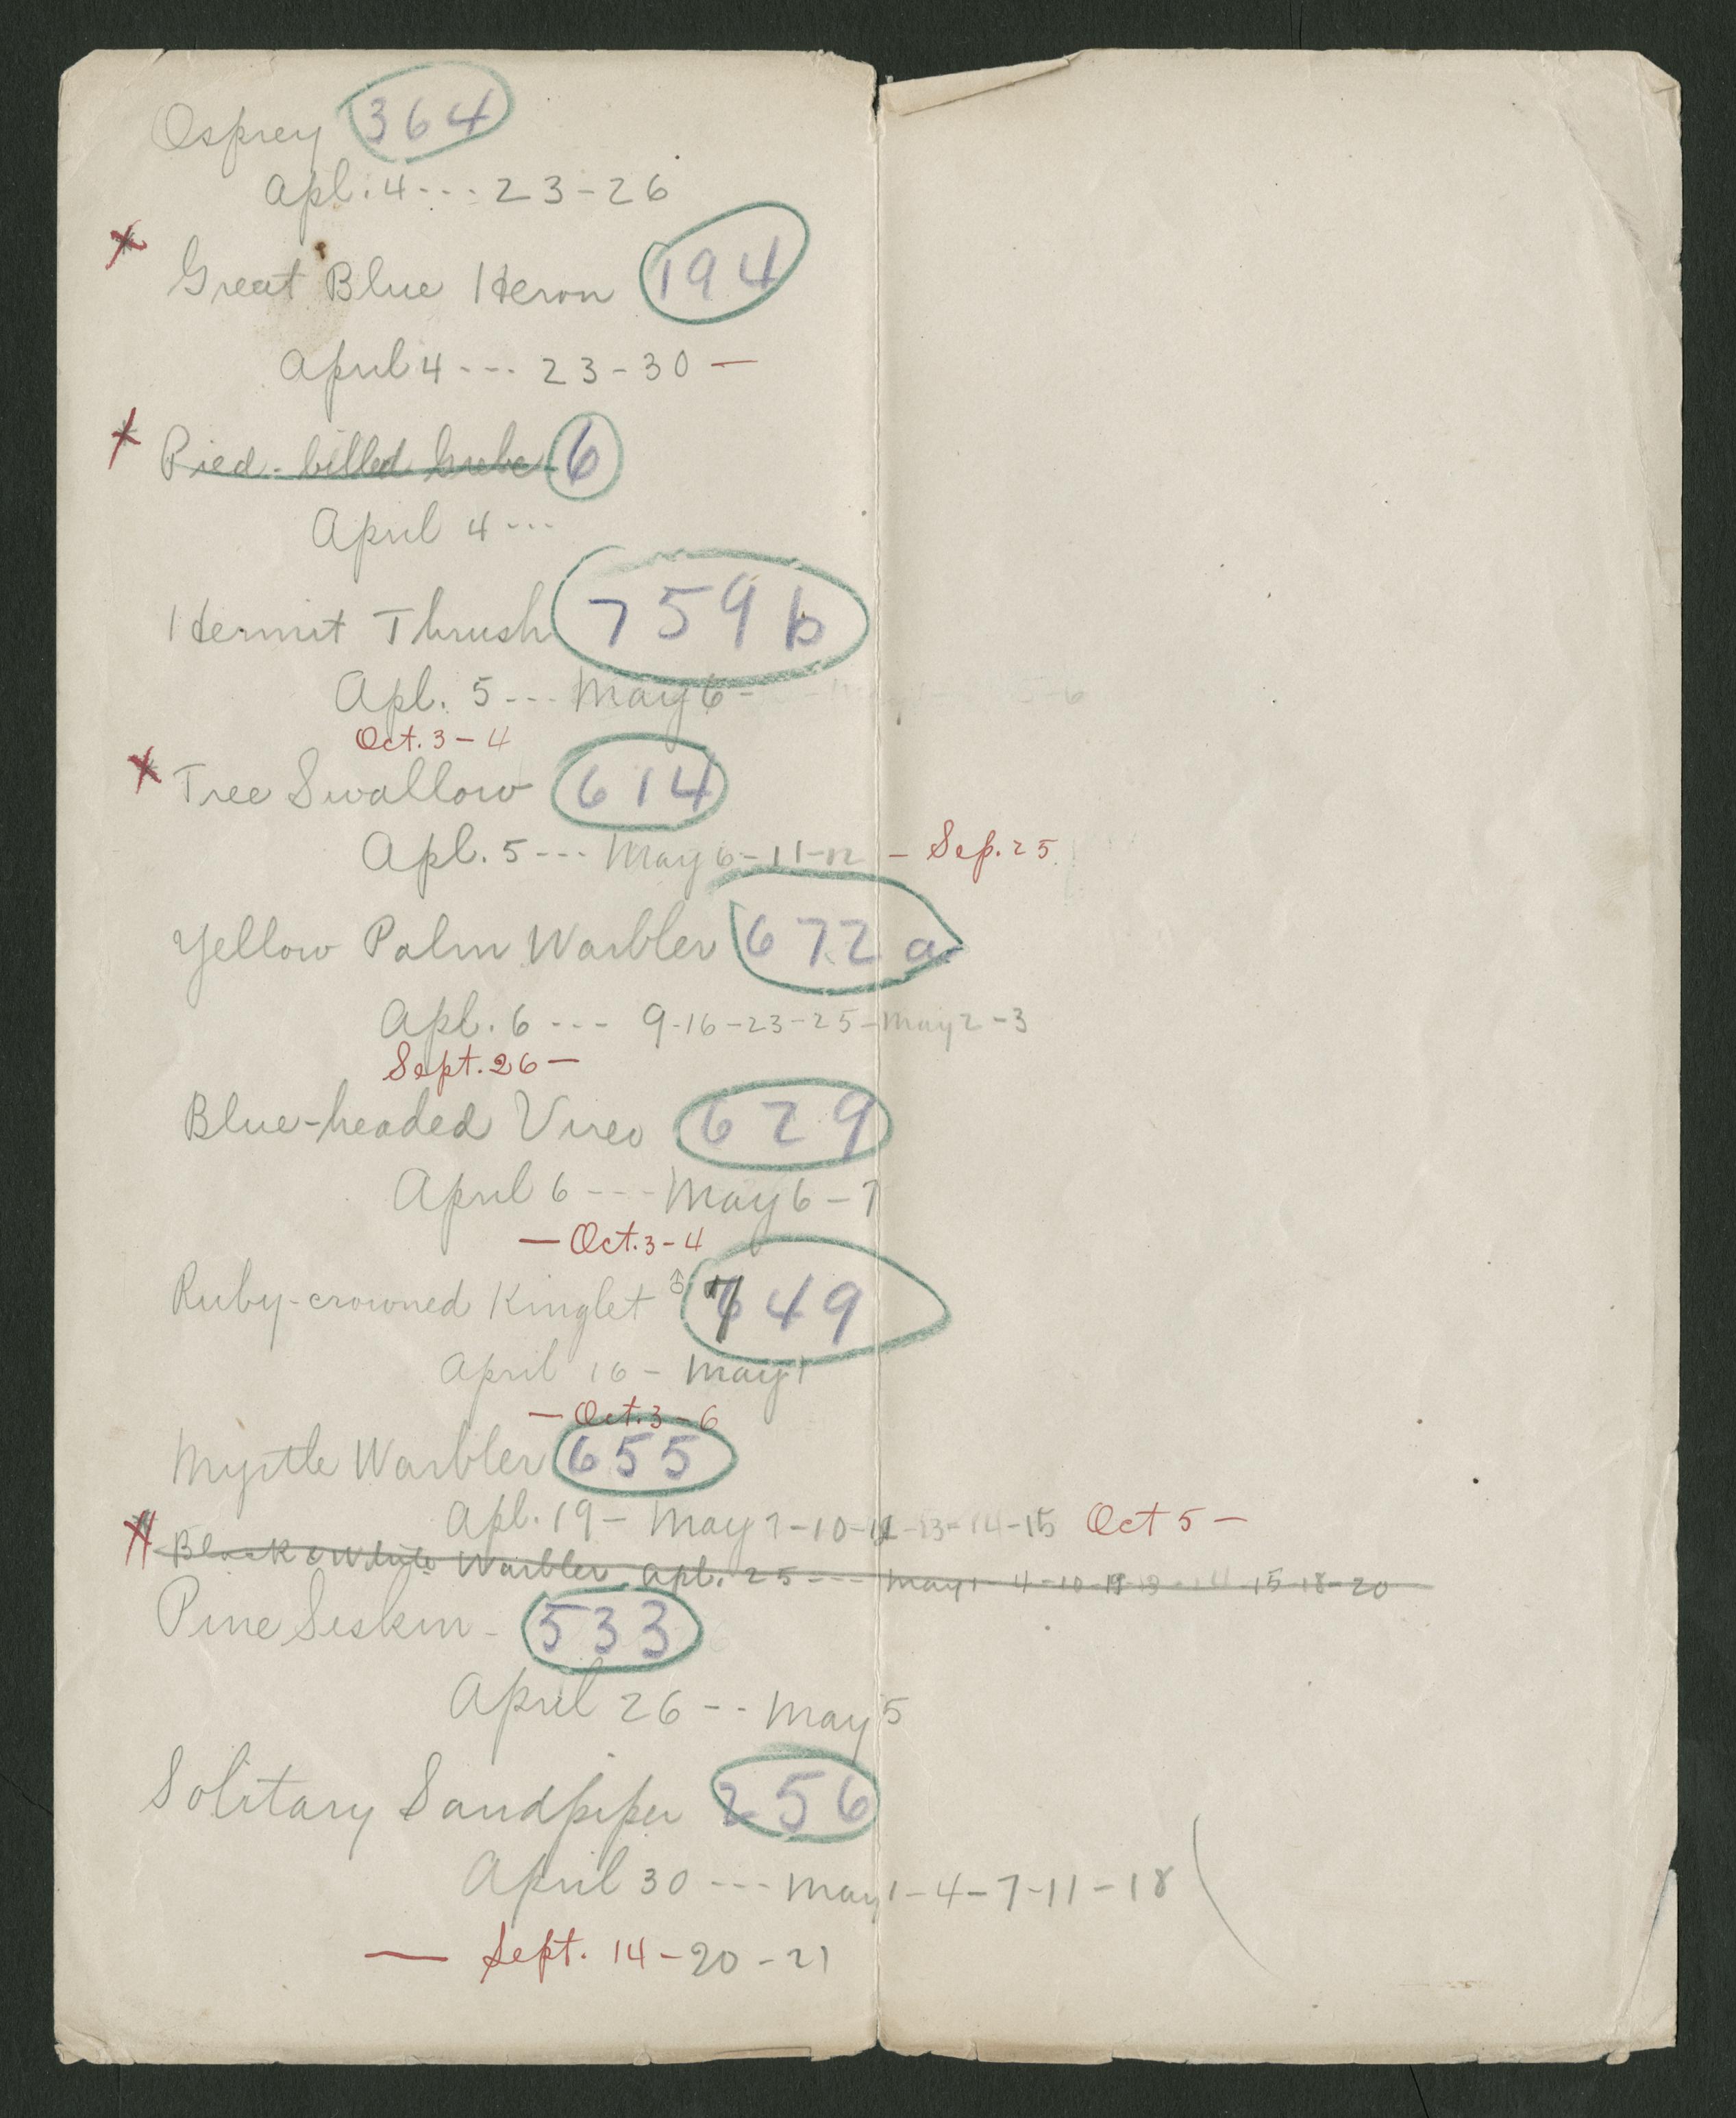 Osprey 364
Apl. 4 --- 23-26
x Great Blue Heron 194
April 4 --- 23-30 -
x Pied-billed Grebe 6
April 4 ---
Hermit Thrush 759b
Apl. 5 --- May 6 -
Oct. 3-4
x Tree Swallow 614
Apl. 5 --- May 6-11-12 - Sep. 25
Yellow Palm Warbler 672a
Apl. 6 --- 9-16-23-25-May 2-3
Sept. 26 -
Blue-headed Vireo 629
April 6 --- May 6-7
- Oct. 3-4
Ruby-crowned Kinglet ♂ 749
April 16 - May 1
- Oct. 3-6
Myrtle Warbler 655
Apl. 19 - May 7-10-11-13-14-15 Oct 5 -
Black & White Warbler. Apl. 25 --- May 1-4-10-13-14-15-18-20
Pine Siskin - 533
April 26 -- May 5
Solitary Sandpiper 256
April 30 --- May 1-4-7-11-18
- Sept. 14-20-21